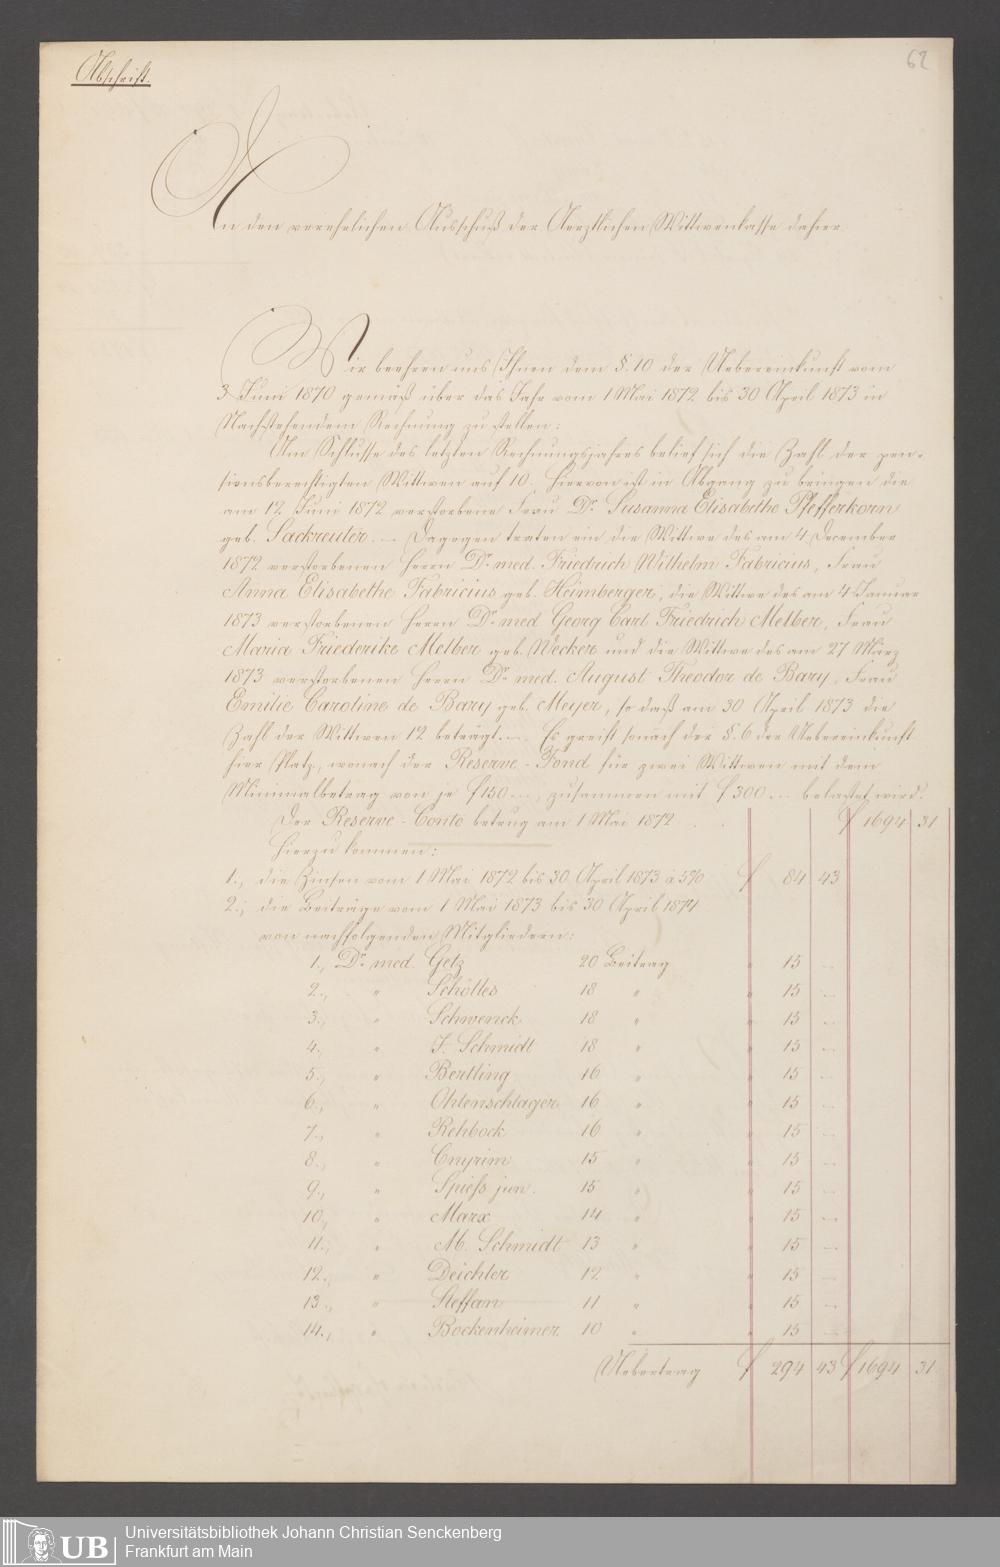 Abschrift.
62
An den verehrlichen Ausschuß der Aerztlichen Wittwenkasse dahier.
Wir beehren uns Ihnen dem §. 10 der Uebereinkunft vom
3 Juni 1870 gemäß über das Jahr vom 1 Mai 1872 bis 30 April 1873 in
Nachstehendem Rechnung zu stellen:
Am Schlusse des letzten Rechnungsjahres belief sich die Zahl der pen-
sionsberechtigten Wittwen auf 10. Hiervon ist in Abgang zu bringen die
am 12 Juni 1872 verstorbene Frau Dr. Susanna Elisabethe Pfefferkorn
geb. Sackreuter. — Dagegen traten ein die Wittwe des am 4 December
1872 verstorbenen Herrn Dr. med. Friedrich Wilhelm Fabricius, Frau
Anna Elisabethe Fabricius geb. Heimberger, die Wittwe des am 4 Januar
1873 verstorbenen Herrn Dr. med Georg Carl Friedrich Melber, Frau
Maria Friederike Melber geb. Wecker und die Wittwe des am 27 März
1873 verstorbenen Herrn Dr. med. August Theodor de Bary, Frau
Emilie Caroline de Bary geb. Meyer, so daß am 30 April 1873 die
Zahl der Wittwen 12 beträgt. — Es greift sonach der §. 6 der Uebereinkunft
hier Platz, wonach der Reserve-Fond für zwei Wittwen mit dem
Minimalbetrag von je f 150 —, zusammen mit f 300. — belastet wird.
Der Reserve-Conto betrug am 1 Mai 1872 . . f 1694 31
Hierzu kommen:
1., die Zinsen vom 1 Mai 1872 bis 30 April 1873 à 5% f 84 43
2., die Beiträge vom 1 Mai 1873 bis 30 April 1874
von nachfolgenden Mitgliedern:
1., Dr. med. Getz 20 Beitrag " 15 —
2., " Schölles 18 " " 15 —
3., " Schwenck 18 " " 15 —
4., " F. Schmidt 18 " " 15 —
5., " Bertling 16 " " 15 —
6., " Ohlenschlager 16 " " 15 —
7., " Rehbock 16 " " 15 —
8., " Cnyrim 15 " " 15 —
9., " Spiess jun. 15 " " 15 —
10., " Marx 14 " " 15 —
11., " M. Schmidt 13 " " 15 —
12., " Deichler 12 " " 15 —
13., " Steffan 11 " " 15 —
14., " Bockenheimer 10 " " 15 —
Uebertrag f 294 43 f 1694 31
UB
Universitätsbibliothek Johann Christian Senckenberg
Frankfurt am Main